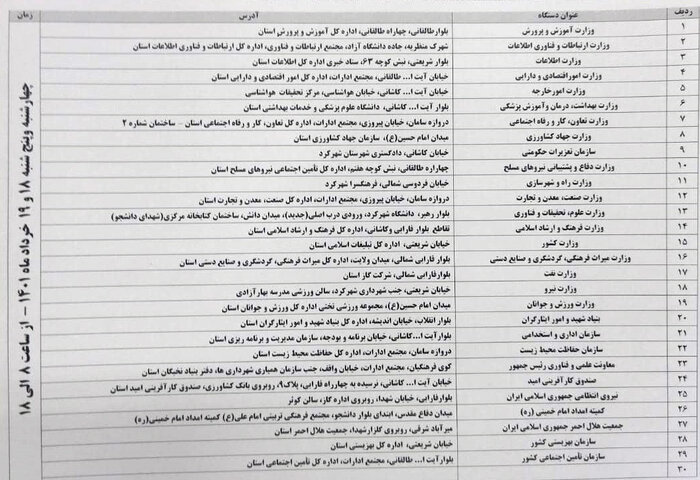 ردیف عنوان دستگاه آدرس زمان
۱ وزارت آموزش و پرورش بلوارطالقانی، چهاراه طالقانی، اداره کل آموزش و پرورش استان
۲ وزارت ارتباطات و فناوری اطلاعات شهرک منظریه، جاده دانشگاه آزاد، مجتمع ارتباطات و فناوری، اداره کل ارتباطات و فناوری اطلاعات استان
۳ وزارت اطلاعات بلوار شریعتی، نبش کوچه ۶۳، ستاد خبری اداره کل اطلاعات استان
۴ وزارت اموراقتصادی و دارایی خیابان آیت ا... طالقانی، مجتمع ادارات، اداره کل امور اقتصادی و دارایی استان
۵ وزارت امورخارجه خیابان آیت ا... کاشانی، خیابان هواشناسی، مرکز تحقیقات هواشناسی
۶ وزارت بهداشت، درمان وآموزش پزشکی بلوار آیت ا... کاشانی، دانشگاه علوم پزشکی و خدمات بهداشتی استان
۷ وزارت تعاون، کار و رفاه اجتماعی دروازه سامان، خیابان پیروزی، مجتمع ادارات، اداره کل تعاون، کار و رفاه اجتماعی استان – ساختمان شماره ۲
۸ وزارت جهاد کشاورزی میدان امام حسین(ع)، سازمان جهاد کشاورزی استان
۹ سازمان تعزیرات حکومتی خیابان کاشانی، دادگستری شهرستان شهرکرد
۱۰ وزارت دفاع و پشتیبانی نیروهای مسلح چهاراره طالقانی، نبش کوچه هفتم، اداره کل تأمین اجتماعی نیروهای مسلح استان
۱۱ وزارت راه و شهرسازی خیابان فردوسی شمالی، فرهنگسرا شهرکرد
۱۲ وزارت صنعت، معدن و تجارت دروازه سامان، خیابان پیروزی، مجتمع ادارات، اداره کل صنعت، معدن و تجارت استان
۱۳ وزارت علوم، تحقیقات و فناوری بلوار رهبر، دانشگاه شهرکرد، ورودی درب اصلی(جدید)، میدان دانش، ساختمان کتابخانه مرکزی(شهدای دانشجو)
۱۴ وزارت فرهنگ و ارشاد اسلامی تقاطع بلوار فارابی وکاشانی، اداره کل فرهنگ و ارشاد اسلامی استان
۱۵ وزارت کشور خیابان شریعتی، اداره کل تبلیغات اسلامی استان
۱۶ وزارت میراث فرهنگی، گردشگری و صنایع دستی بلوار فارابی شمالی، میدان ولایت، اداره کل میراث فرهنگی، گردشگری و صنایع دستی استان
۱۷ وزارت نفت بلوارفارابی شمالی، شرکت گاز استان
۱۸ وزارت نیرو خیابان شریعتی، جنب شهرداری شهرکرد، سالن ورزشی مدرسه بهارآزادی
۱۹ وزارت ورزش و جوانان میدان امام حسین(ع)، مجموعه ورزشی تختی اداره کل ورزش و جوانان استان
۲۰ بنیاد شهید و امور ایثارگران بلوار انقلاب، خیابان اندیشه، اداره کل بنیاد شهید و امور ایثارگران استان
۲۱ سازمان اداری و استخدامی بلوارآیت ا...کاشانی، خیابان برنامه و بودجه، سازمان مدیریت و برنامه ریزی استان
۲۲ سازمان حفاظت محیط زیست دروازه سامان، مجتمع ادارات، اداره کل حفاظت محیط زیست استان
۲۳ معاونت علمی و فناوری رئیس جمهور کوی فرهنگیان، مجتمع ادارات، خیابان واقف، جنب سازمان همیاری شهرداری ها، دفتر بنیاد نخبگان استان
۲۴ صندوق کارآفرینی امید خیابان آیت ا... کاشانی، نرسیده به چهارراه فارابی، پلاک۹، روبروی بانک کشاورزی، صندوق کارآفرینی امید استان
۲۵ نیروی انتظامی جمهوری اسلامی ایران بلوارفارابی، خیابان شهدا، روبروی اداره گاز، سالن کوثر
۲۶ کمیته امداد امام خمینی(ره) میدان دفاع مقدس، ابتدای بلوار دانشجو، مجتمع فرهنگی تربیتی امام علی(ع) کمیته امداد امام خمینی(ره)
۲۷ جمعیت هلال احمر جمهوری اسلامی ایران میرآباد شرقی، روبروی گلزارشهدا، جمعیت هلال احمر استان
۲۸ سازمان بهزیستی کشور خیابان شریعتی، اداره کل بهزیستی استان
۲۹ سازمان تأمین اجتماعی کشور بلوارآیت ا... طالقانی، مجتمع ادارات، اداره کل تأمین اجتماعی استان
۳۰
چهارشنبه وپنج شنبه ۱۸ و ۱۹ خرداد ماه ۱۴۰۱ – از ساعت ۸ الی ۱۸